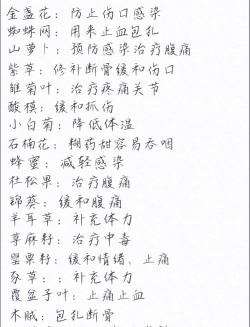 金盏花：防止伤口感染
蜘蛛网：用来止血包扎
山萝卜：预防感染治疗腹痛
紫草：修补断骨缓和伤口
雏菊叶：治疗疼痛关节
酸模：缓和抓伤
小白菊：降低体温
石楠花：糊药甜容易吞咽
蜂蜜：减轻感染
杜松果：治疗腹痛
锦葵：缓和腹痛
羊耳草：补充体力
荨麻籽：治疗中毒
罂粟籽：缓和情绪、止痛
豕草：：补充体力
覆盆子叶：止痛止血
木贼：包扎断骨